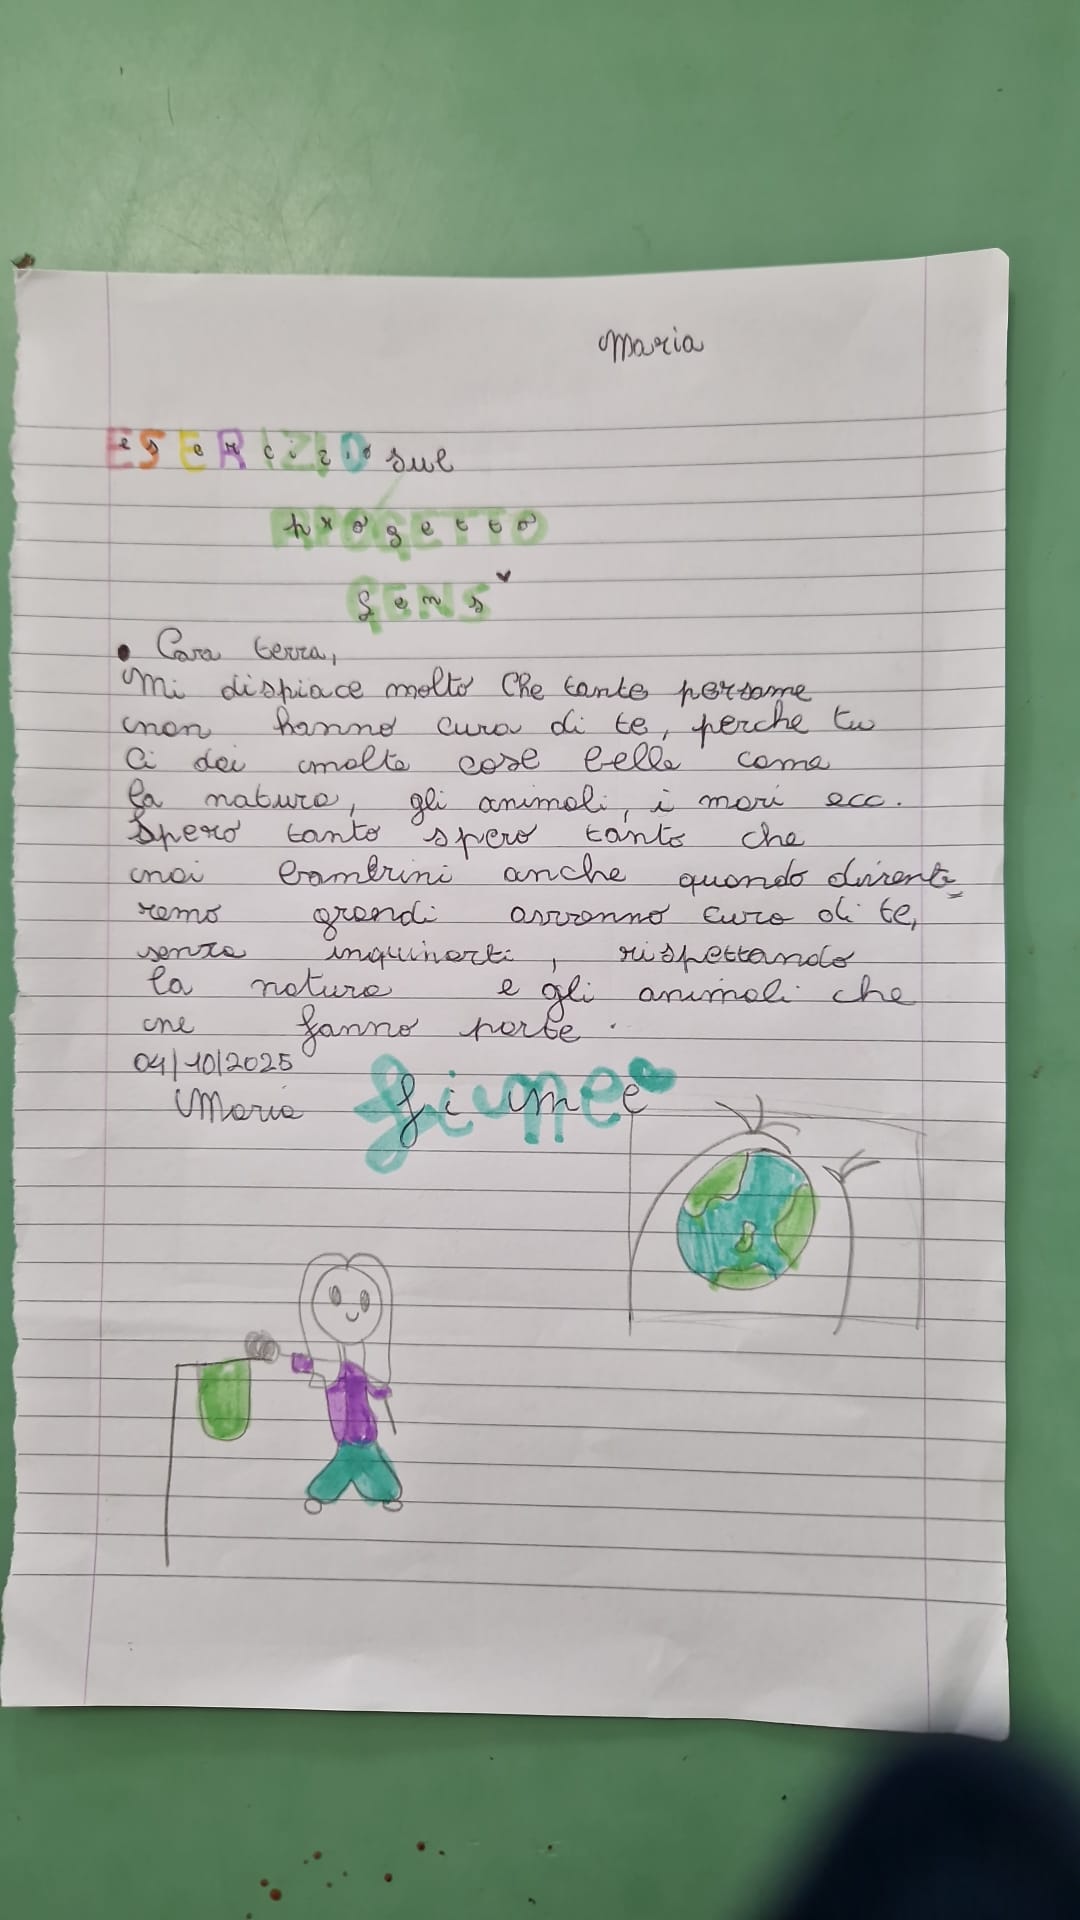 Maria
esercizio sul
progetto
gens
• Cara terra,
Mi dispiace molto che tante persone
non hanno cura di te, perche tu
ci dai molte cose belle come
la natura, gli animali, i mari ecc.
Spero tanto spero tanto che
noi bambini anche quando divente=
remo grandi avranno cura di te,
senza inquinarti, rispettando
la natura e gli animali che
ne fanno parte.
04/10/2025
Maria fine